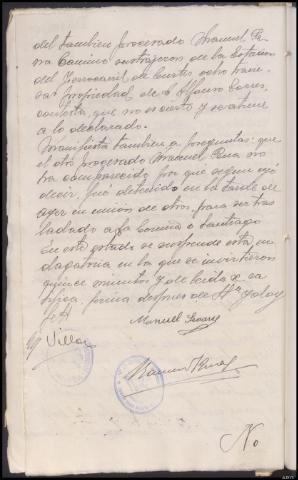 del tambien procesado Manuel Pe-
na Camino sustrajeron de la Estacion
del Ferrocarril de Curtis ocho travi-
sas propiedad de D. Alfonso
contesta, que no es cierto y se atiene
a lo declarado.
Manifiesta tambien a preguntas: que
el otro procesado Manuel Pena no
ha comparecido por que segun oyó
decir, fué detenido en la tarde de
ayer en union de otros, para ser tras-
ladado a la Coruña o Santiago
En este estado se suspende esta in-
dagatoria en la que se invirtieron
quince minutos y leida x se
firma despues de
Manuel
Villar
No